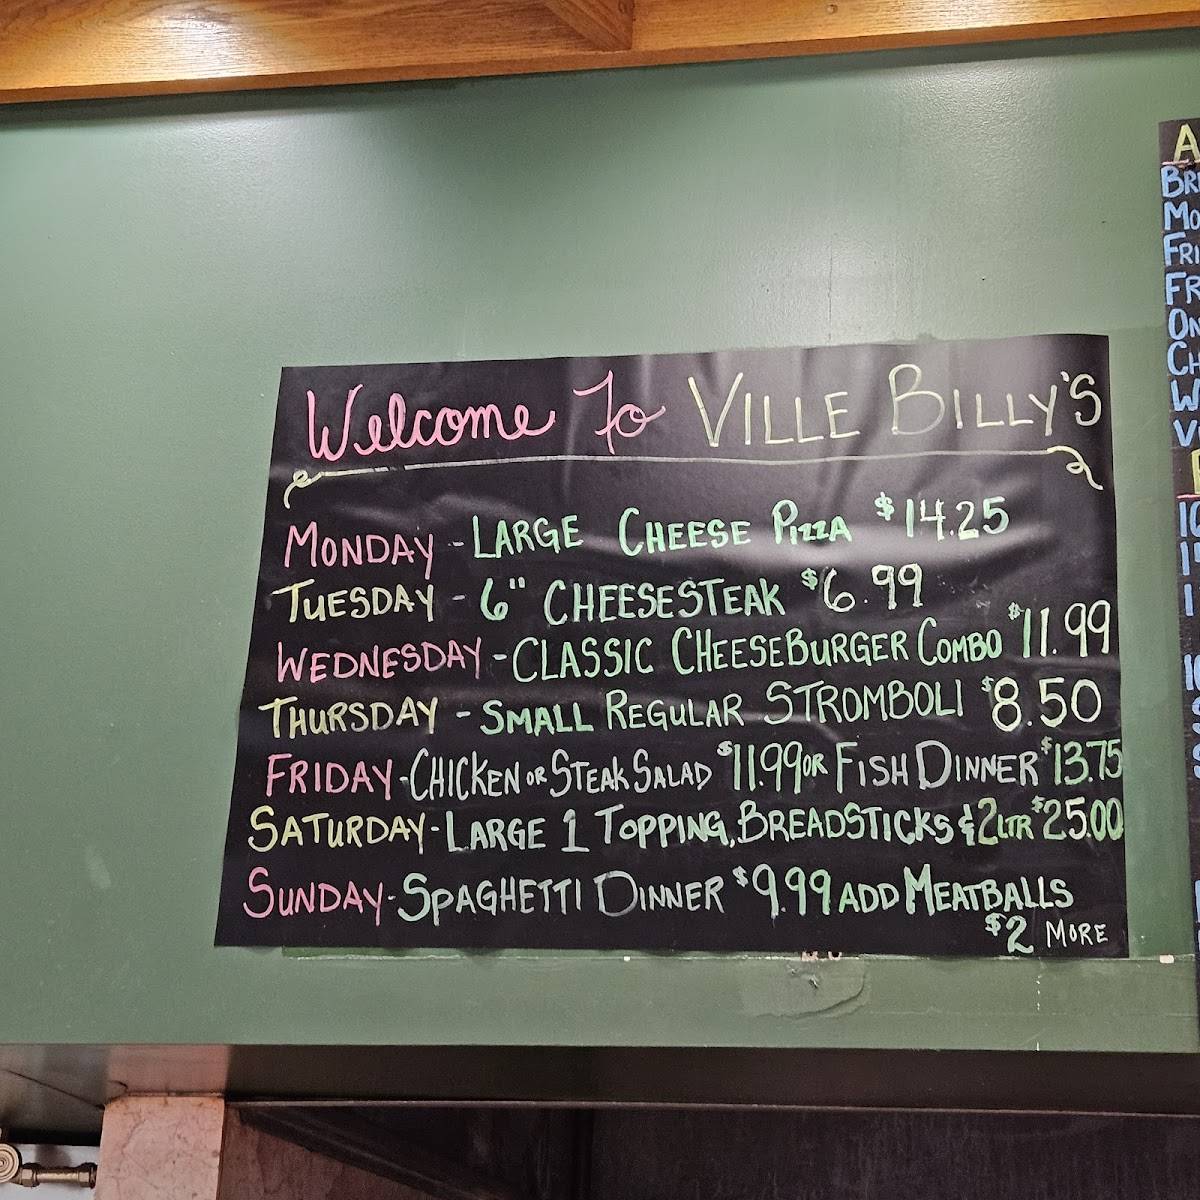 Welcome To VILLE BILLY'S
MONDAY - LARGE CHEESE PIZZA $14.25
TUESDAY - 6" CHEESESTEAK $6.99
WEDNESDAY - CLASSIC CHEESEBURGER COMBO $11.99
THURSDAY - SMALL REGULAR STROMBOLI $8.50
FRIDAY - CHICKEN OR STEAK SALAD $11.99 OR FISH DINNER $13.75
SATURDAY - LARGE 1 TOPPING, BREADSTICKS & 2LTR $25.00
SUNDAY - SPAGHETTI DINNER $9.99 ADD MEATBALLS
$2 MORE